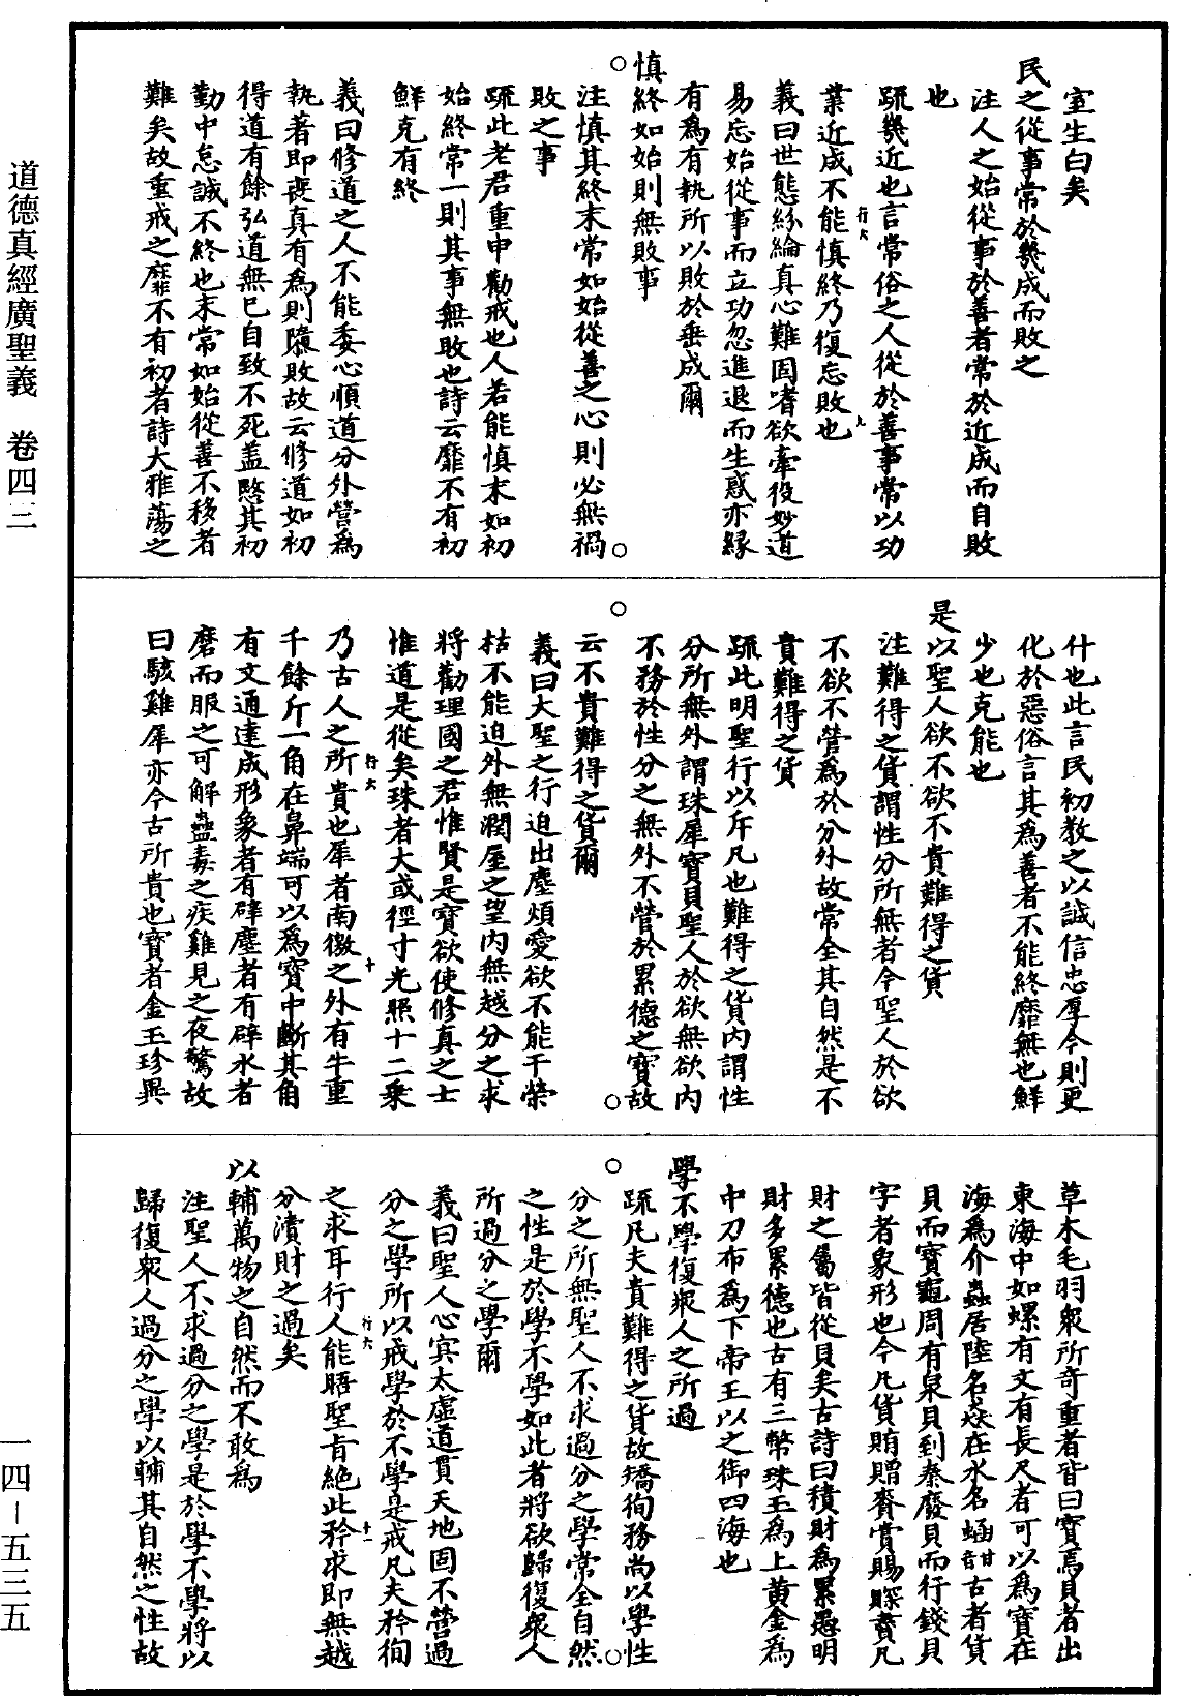 室生白矣
民之從事常於幾成而敗之
注人之始從事於善者常於近成而自敗
也
疏幾近也言常俗之人從於善事常以功
業近成不能慎終乃復忘敗也
行六
九
義曰世態紛綸真心難固嗜欲牽役妙道
易忘始從事而立功忽進退而生惑亦緣
有爲有執所以敗於垂成爾
慎終如始則無敗事
注慎其終末常如始從善之心則必無禍
敗之事
疏此老君重申勸戒也人若能慎末如初
始終常一則其事無敗也詩云靡不有初
鮮克有終
義曰修道之人不能委心順道分外營爲
執著即喪真有爲則隳敗故云修道如初
得道有餘弘道無已自致不死盖愍其初
勤中怠誠不終也末常如始從善不移者
難矣故重戒之靡不有初者詩大雅蕩之
什也此言民初教之以誠信忠厚今則更
化於惡俗言其爲善者不能終靡無也鮮
少也克能也
是以聖人欲不欲不貴難得之貨
注難得之貨謂性分所無者今聖人於欲
不欲不營爲於分外故常全其自然是不
貴難得之貨
疏此明聖行以斥凡也難得之貨内謂性
分所無外謂珠犀寶貝聖人於欲無欲内
不務於性分之無外不營於累德之寶故
云不貴難得之貨爾
義曰大聖之行迫出塵煩愛欲不能干榮
枯不能迫外無潤屋之望内無越分之求
將勸理國之君惟賢是寶欲使修真之士
惟道是從矣珠者大或徑寸光照十二乗
行六
十
乃古人之所貴也犀者南徼之外有牛重
千餘斤一角在鼻端可以爲寶中斷其角
有文通達成形象者有辟塵者有辟水者
磨而服之可解蠱毒之疾雞見之夜驚故
曰駭雞犀亦今古所貴也寶者金玉珍異
草木毛羽衆所奇重者皆曰寶焉貝者出
東海中如螺有文有長尺者可以爲寶在
海爲介蟲居陸名猋在水名蜬音甜古者貨
貝而寶龜周有泉貝到秦廢貝而行錢貝
字者象形也今凡貨賄贈賚賞賜賝賣凡
財之屬皆從貝矣古詩曰積財爲累愚明
財多累德也古有三幣珠玉爲上黄金爲
中刀布爲下帝王以之御四海也
學不學復衆人之所過
疏凡夫貴難得之貨故矯徇務尚以學性
分之所無聖人不求過分之學常全自然
之性是於學不學如此者將欲歸復衆人
所過分之學爾
義曰聖人心㝠太虛道貫天地固不營過
分之學所以戒學於不學是戒凡夫矜徇
行六
十一
之求耳行人能晤聖旨絶此矜求即無越
分瀆財之過矣
以輔萬物之自然而不敢爲
注聖人不求過分之學是於學不學將以
歸復衆人過分之學以輔其自然之性故
道德真經廣聖義　卷四三
一四－五三五